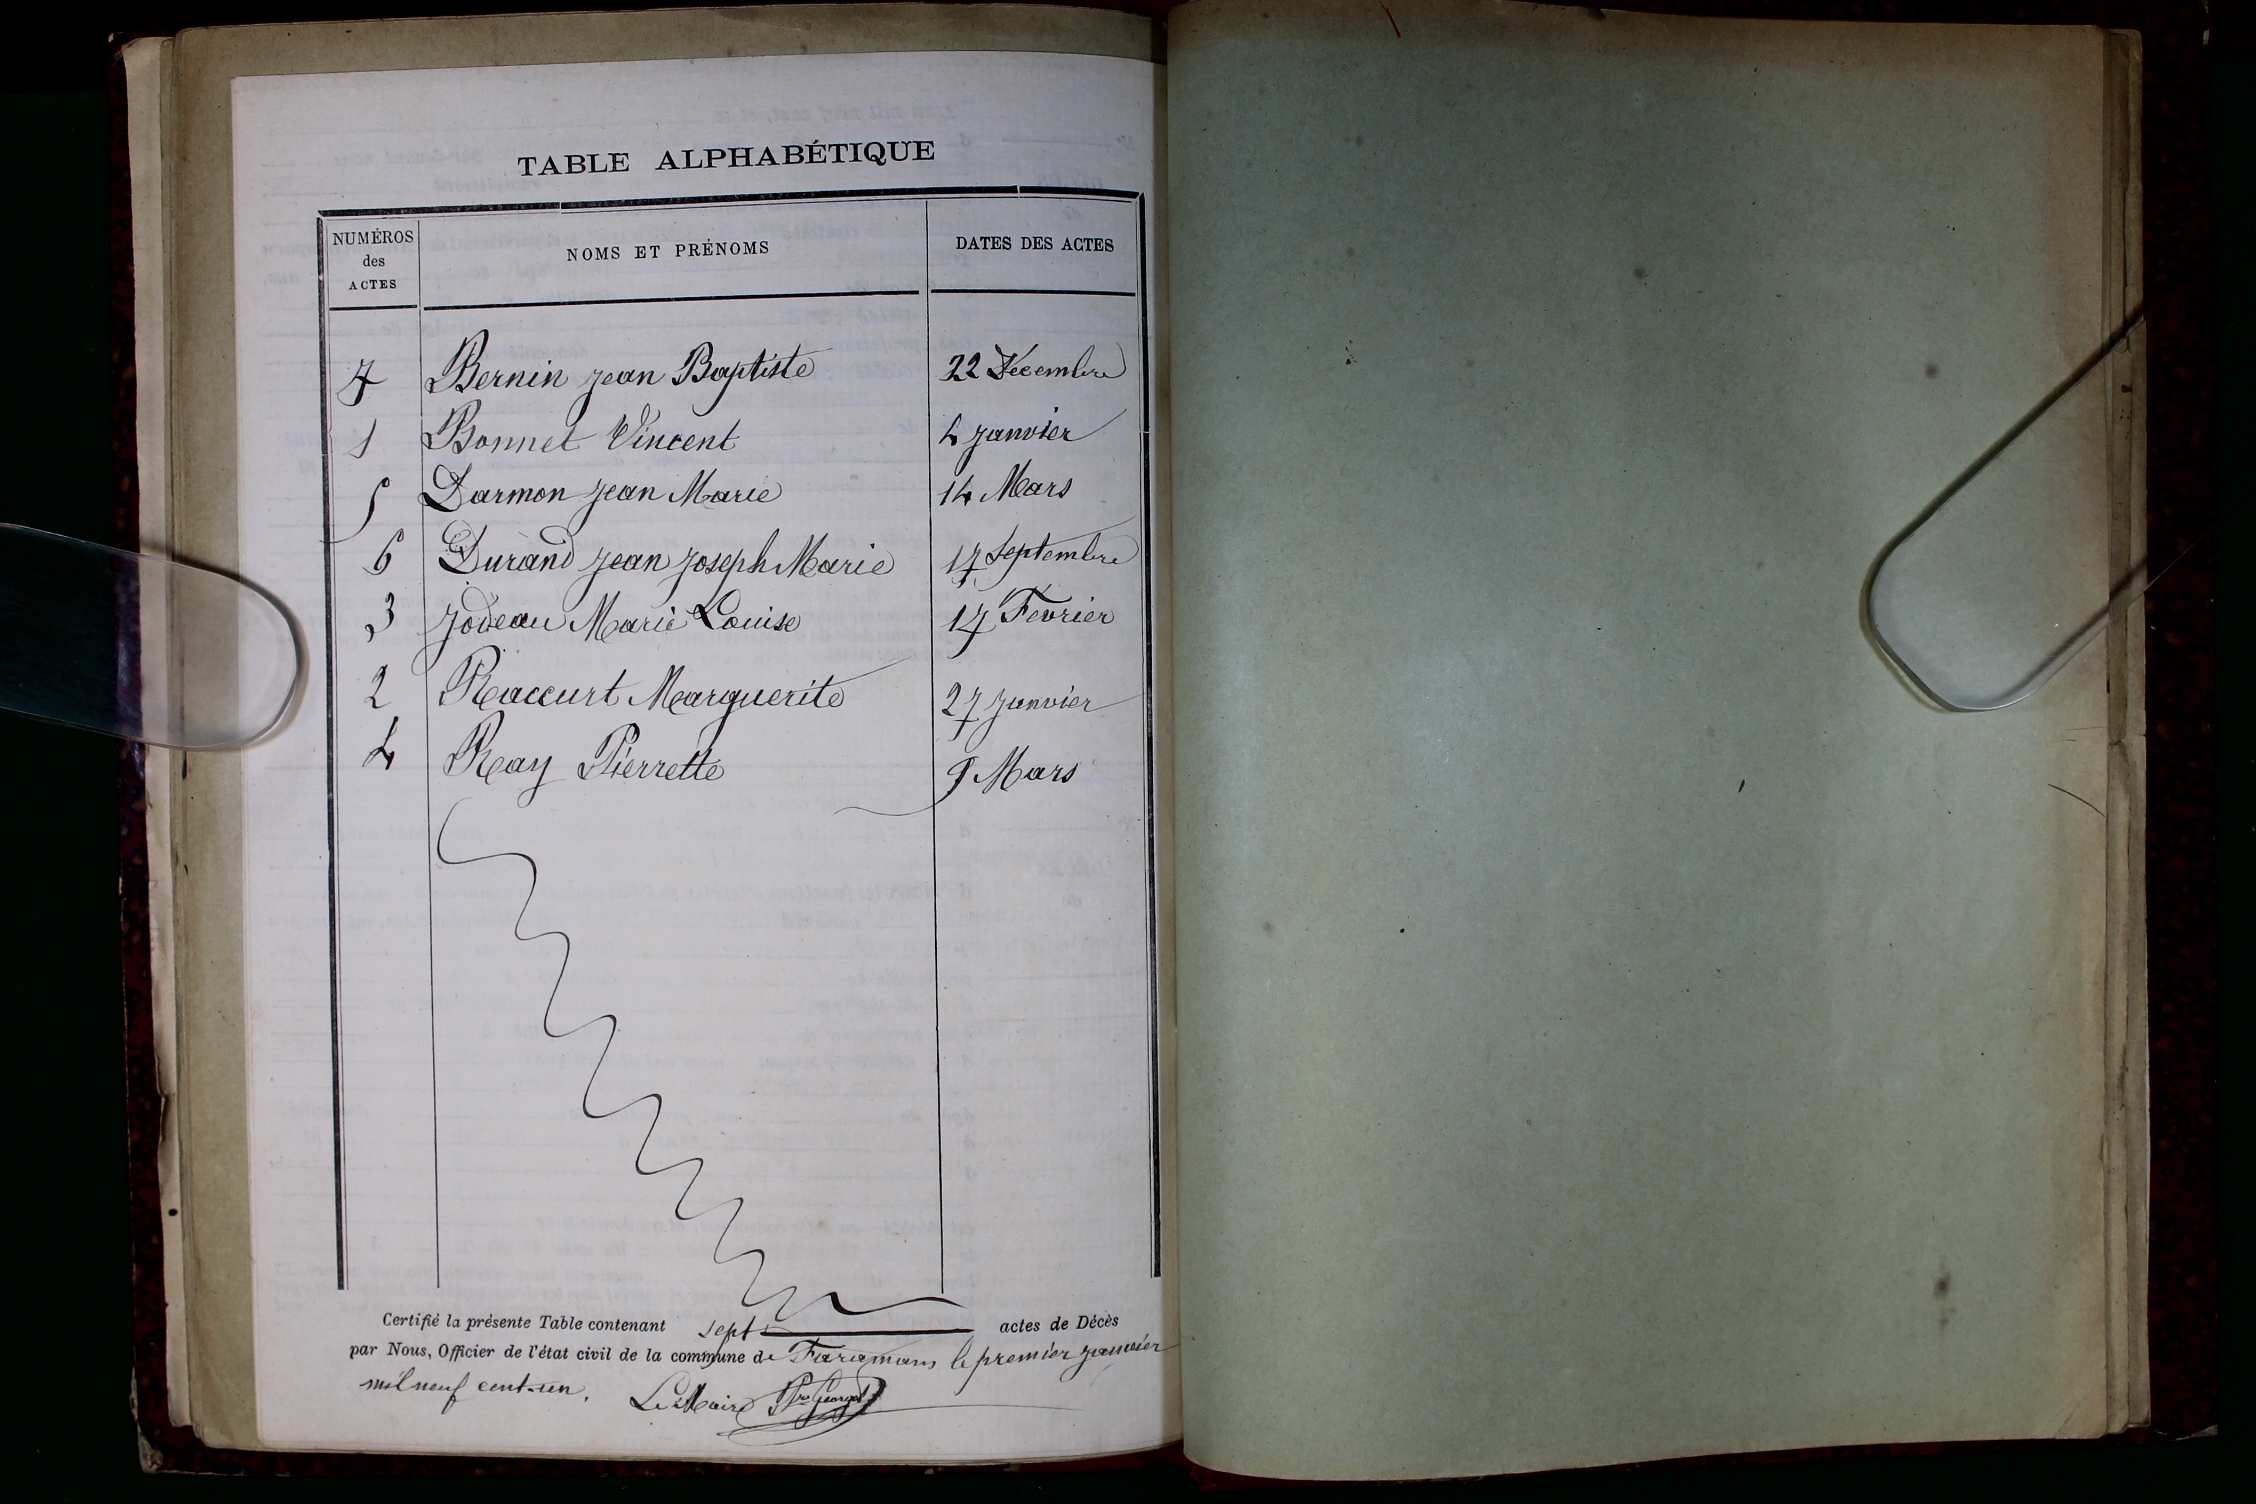 TABLE ALPHABÉTIQUE
NUMÉROS des ACTES NOMS ET PRÉNOMS DATES DES ACTES
7 Bernin jean Baptiste 22 Décembre
1 Bonnet Vincent 4 janvier
5 Darmon jean Marie 14 Mars
6 Durand jean joseph Marie 17 Septembre
3 jodeau Marie Louise 17 Fevrier
2 Raccurt Marguerite 27 janvier
4 Ray Pierrette 9 Mars
Certifié la présente Table contenant sept actes de Décès
par Nous, Officier de l'état civil de la commune de Faramans le premier janvier
mil neuf cent-un. Le Maire